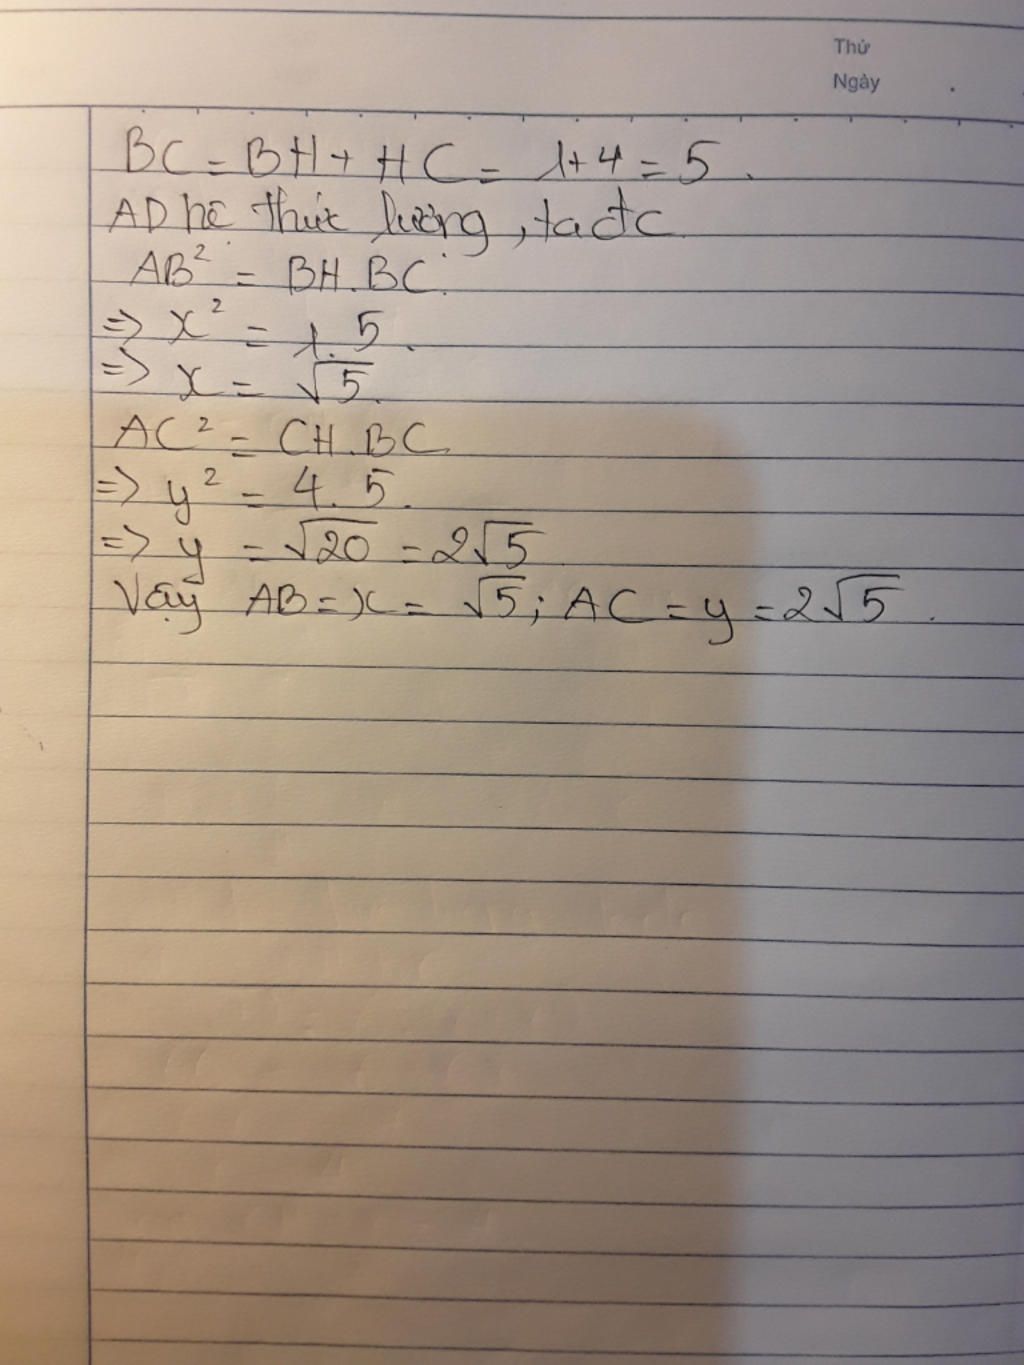 Thứ
Ngày
BC = BH + HC = 1+4 = 5.
AD hê thức lương, ta đc
AB² = BH.BC.
=> x² = 1.5.
=> x = √5.
AC² = CH.BC
=> y² = 4.5.
=> y = √20 = 2√5
Vậy AB = x = √5; AC = y = 2√5.